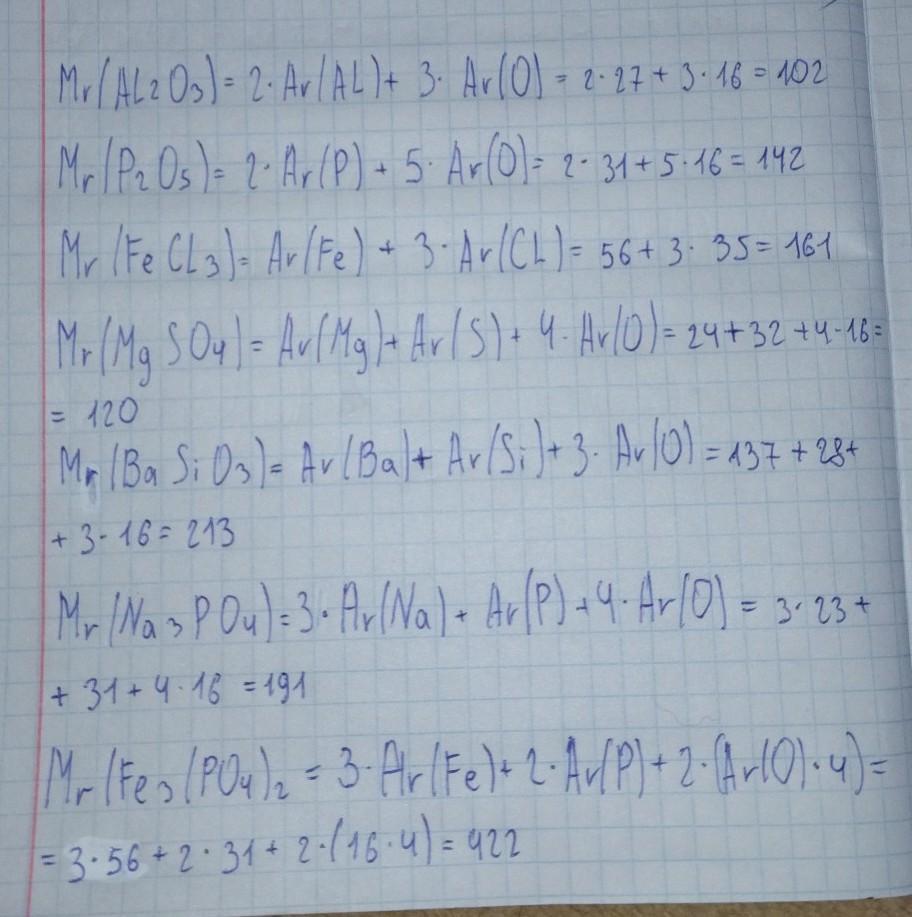 Mr(AL2O3)= 2·Ar(AL)+ 3· Ar(O) = 2·27 + 3·16 = 102
Mr(P2O5)= 2·Ar(P) + 5· Ar(O)= 2·31+5·16 = 142
Mr(FeCL3)= Ar(Fe) + 3·Ar(CL)= 56+3·35= 161
Mr(MgSO4)= Ar(Mg)+ Ar(S)+ 4·Ar(O)= 24+32+4·16=
= 120
Mr(BaSiO3)= Ar(Ba)+ Ar(Si)+3·Ar(O) = 137+28+
+ 3·16= 213
Mr(Na3PO4)=3·Ar(Na)+ Ar(P)+4·Ar(O) = 3·23+
+ 31+4·16 =191
Mr(Fe3(PO4)2 = 3·Ar(Fe)+2·Ar(P)+2·(Ar(O)·4)=
= 3·56+2·31+ 2·(16·4)= 422